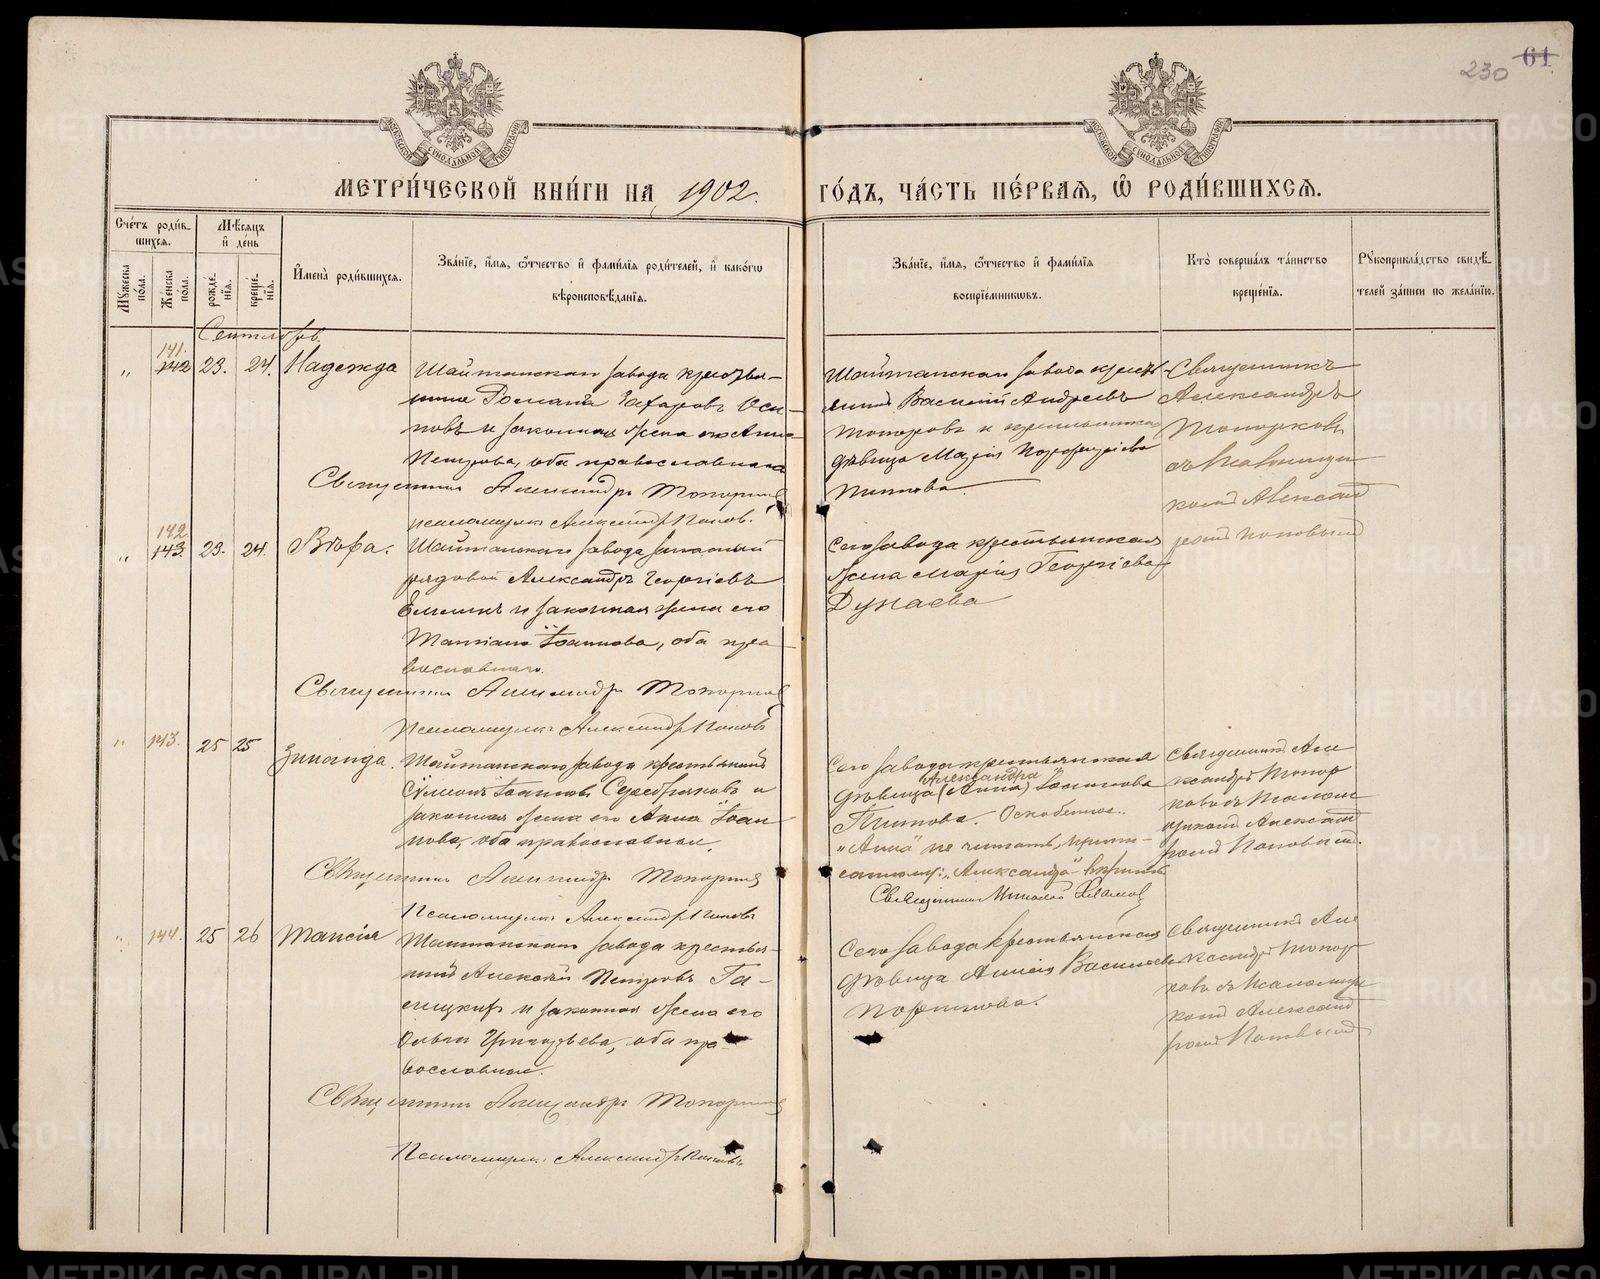 230 61
МОСКОВСКОЙ СѴНОДАЛЬНОЙ ТИПОГРАФІИ
МОСКОВСКОЙ СѴНОДАЛЬНОЙ ТИПОГРАФІИ
МЕТРИ́ЧЕСКОЙ КНИ́ГИ НА 1902. ГО́ДЪ, ЧА́СТЬ ПЕ́РВАѦ, Ѽ РОДИ́ВШИХСѦ.
Сче́тъ роди́в-
шихсѧ.
Мѣ́сѧцъ
и҆ день
Мꙋ́жеска
по́ла.
Же́нска
по́ла.
рожде́-
нїѧ.
креще́-
нїѧ.
И҆мена̀ роди́вшихсѧ.
Зва́нїе, и҆́мѧ, ѻ҆́тчество и҆ фами́лїѧ роди́телей, и҆ како́гѡ
вѣроисповѣ́данїѧ.
Зва́нїе, и҆́мѧ, ѻ҆́тчество и҆ фами́лїѧ
воспрїе́мникѡвъ.
Кто̀ соверша́лъ та́инство
креще́нїѧ.
Рꙋкоприкла́дство свидѣ́-
телей за́писи по жела́нїю.
Сентябрь.
„ 141. 142 23. 24. Надежда
Шайтанскаго завода крестья-
нинъ Романъ Захаровъ Оси-
повъ и законная жена его Анна
Петрова, оба православные
Священникъ Александръ Топорковъ
псаломщикъ Александръ Поповъ.
Шайтанскаго завода кресть-
янинъ Василий Андреевъ
Топоровъ и крестьянская
дѣвица Марія Порфирьева
Питтова.
Священникъ
Александръ
Топорковъ
съ псаломщи-
комъ Александ-
ромъ Поповымъ
„ 142 143 23. 24. Вѣра.
Шайтанскаго завода запасный
рядовой Александръ Георгіевъ
и законная жена его
Татіана Іоаннова, оба пра-
вославные.
Священникъ Александръ Топорковъ
Псаломщикъ Александръ Поповъ
Сего завода крестьянская
жена Марія Георгіева
Дунаева
„ 143. 25 25 Зинаида.
Шайтанскаго завода крестьянинъ
Сѵмеонъ Іоанновъ Серебряковъ и
законная жена его Анна Іоан-
нова, оба православные.
Священникъ Александръ Топорковъ
Псаломщикъ Александръ Поповъ
Сего завода крестьянская
Александра
дѣвица (Анна) Іоаннова
Питтова. Оскобленное
„Анна“ не читать,
„Александра“ вѣрить
Священникъ Николай
Священникъ Але-
ксандръ Топор-
ковъ съ псалом-
щикомъ Александ-
ромъ Поповымъ.
„ 144. 25 26 Таисія
Шайтанскаго завода крестья-
нинъ Алексѣй Петровъ Га-
и законная жена его
Ольга Григорьева, оба пра-
вославные.
Священникъ Александръ Топорковъ
Псаломщикъ Александръ Поповъ
Сего завода крестьянская
дѣвица Васильева
Священникъ Але-
ксандръ Топор-
ковъ съ псаломщи-
комъ Александ-
ромъ Поповымъ
METRIKI.GASO-URAL.RU